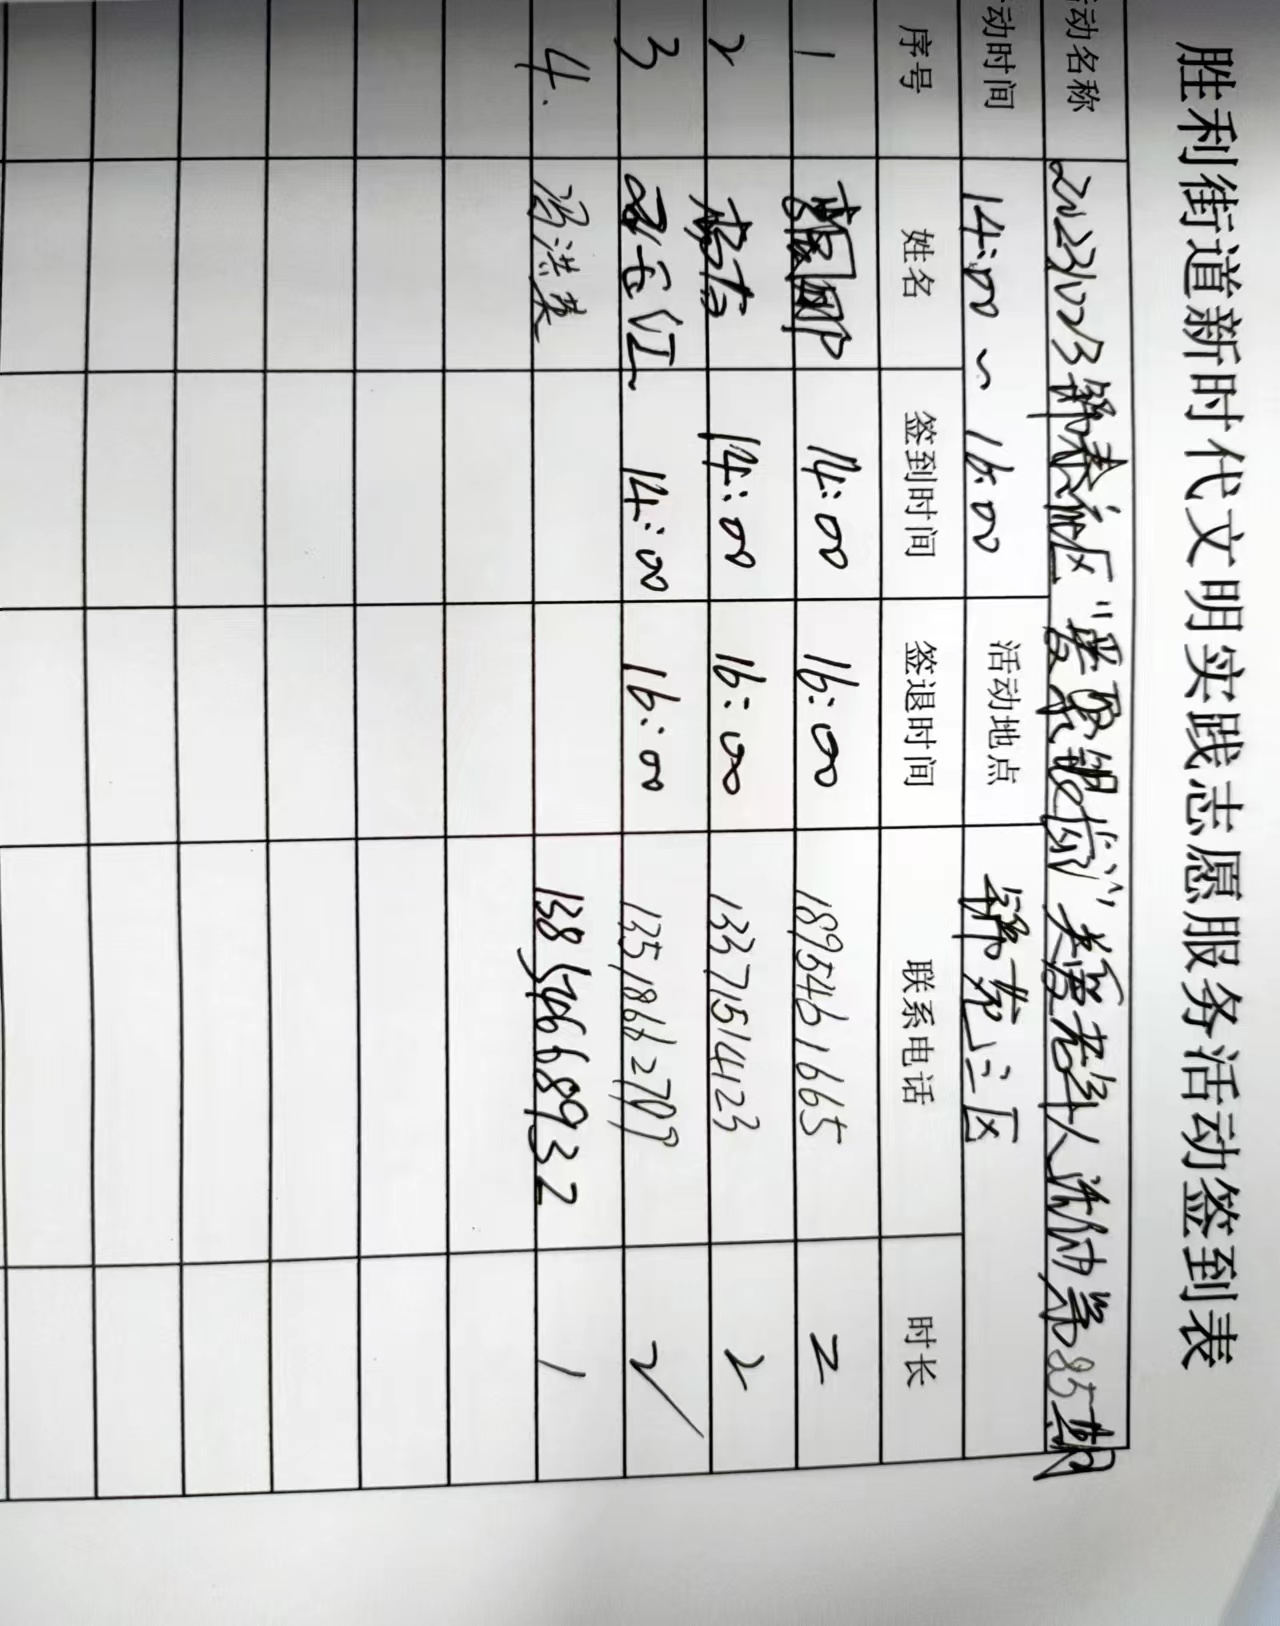 胜利街道新时代文明实践志愿服务活动签到表
动名称 20231023 锦泰社区“爱聚锦泰”关爱老年人活动第85期
动时间 14:00~16:00 活动地点 锦苑三区
序号 姓名 签到时间 签退时间 联系电话 时长
1 14:00 16:00 18954616665 2
2 14:00 16:00 13371514123 2
3 14:00 16:00 2
4. 洪英 13854668932 1